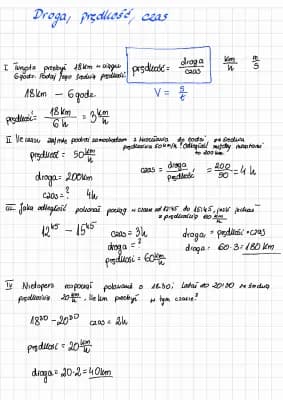 Droga, prędkość, czas
I. Turysta przebył 18 km w ciągu
6 godz. Podaj jego średnią prędkość.
prędkość = droga/czas
km/h m/s
V = s/t
18 km - 6 godz
prędkość = 18km/6h = 3 km/h
II. Ile czasu zajmie podróż samochodem z Warszawy do Łodzi, ze średnią
prędkością 50 km/h? Odległość między miastami
to 200 km
prędkość = 50 km/h
droga = 200km
czas = ? 4h
czas = droga/prędkość = 200/50 = 4h
III. Jaką odległość pokonał pociąg w czasie od 12:45 do 15:45, jeśli jechał
z prędkością 60 km/h
12⁴⁵ - 15⁴⁵
czas = 3h
droga = ?
prędkość = 60 km/h
droga = prędkość · czas
droga = 60 · 3 = 180 km
IV Nietoperz rozpoczął polowanie o 18:30 i latał do 20:30 ze średnią
prędkością 20 km/h. Ile km przebył w tym czasie?
18³⁰ - 20³⁰ czas = 2h
prędkość = 20 km/h
droga = 20 · 2 = 40 km